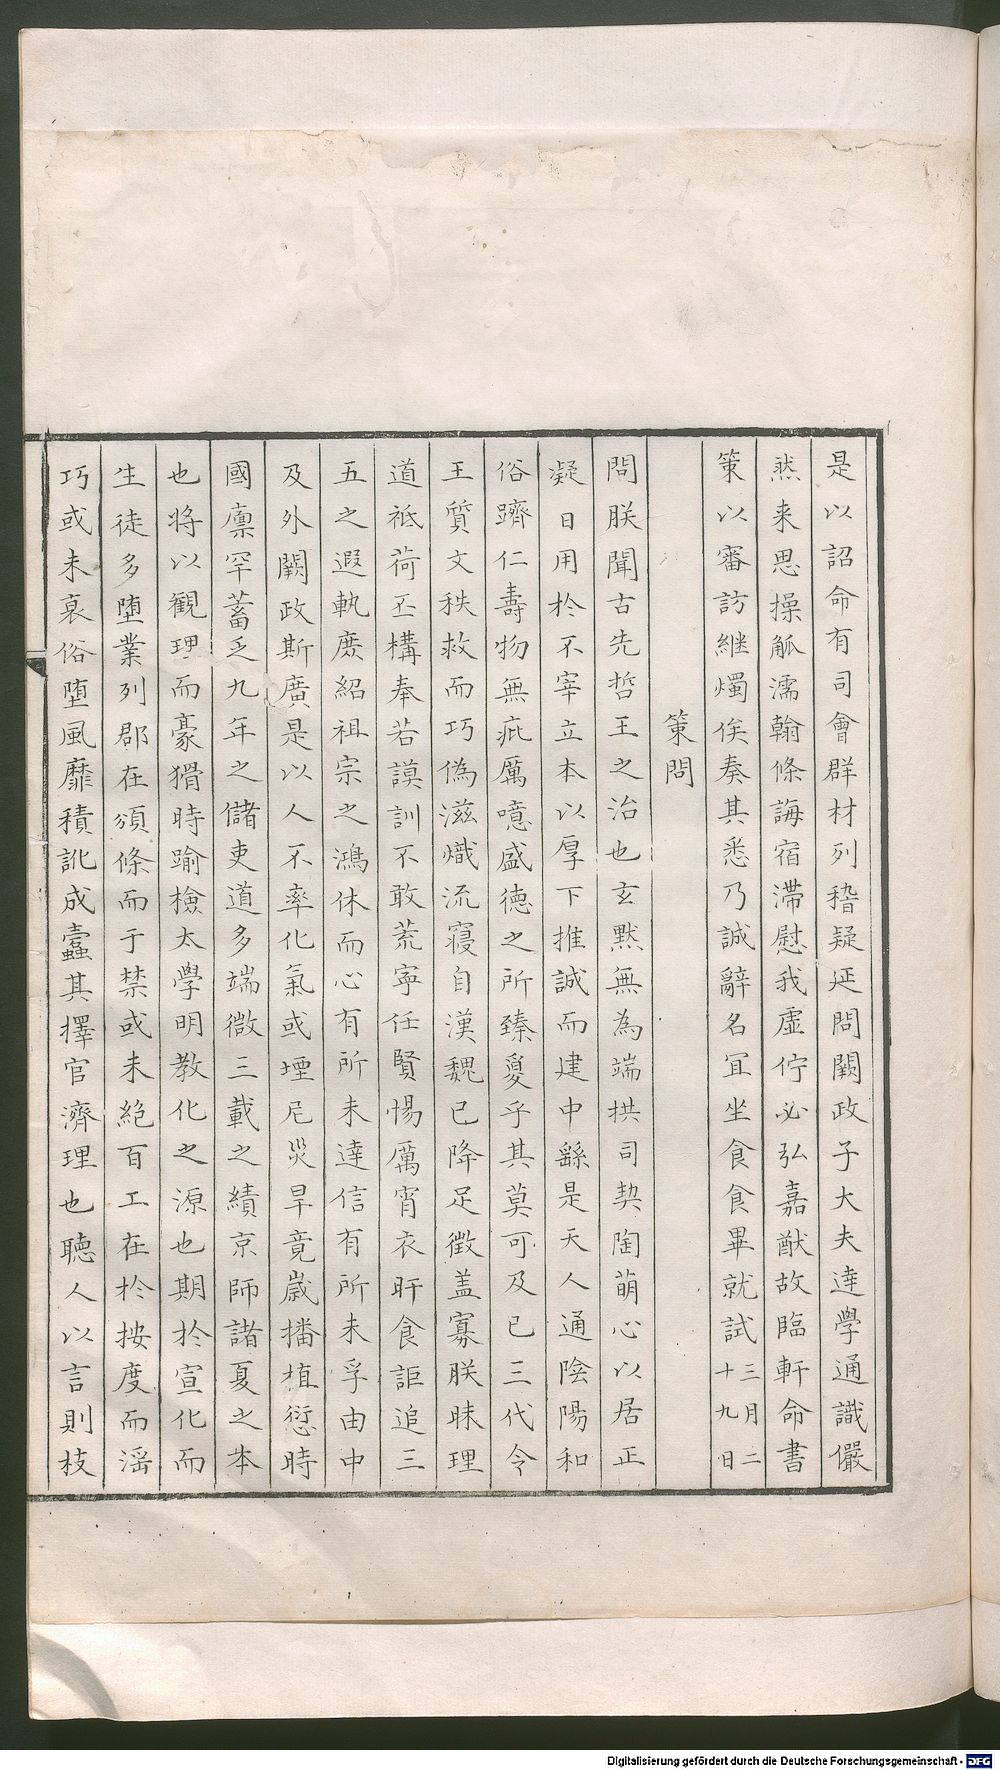 是以詔命有司會群材列稽疑延問闕政子大夫達學通識儼
然来思操觚濡翰條誨宿滯慰我虛佇必弘嘉猷故臨軒命書
策以審訪継燭俟奏其悉乃誠辭名冝坐食食畢就試三月二十九日
策問
問朕聞古先哲王之治也玄黙無為端拱司契陶萌心以居正
凝日用於不宰立本以厚下推誠而建中繇是天人通陰陽和
俗躋仁壽物無疵厲噫盛德之所臻敻乎其莫可及已三代令
王質文秩救而巧偽滋熾流寖自漢魏已降足徵盖寡朕昧理
道祗荷丕構奉若謨訓不敢荒寧任賢惕厲宵衣旰食詎追三
五之遐軌庶紹祖宗之鴻休而心有所未達信有所未孚由中
及外闕政斯廣是以人不率化氣或堙厄災旱竟歳播植愆時
國廩罕蓄乏九年之儲吏道多端微三載之績京師諸夏之本
也將以観理而豪猾時踰檢太學明教化之源也期於宣化而
生徒多墮業列郡在頒條而于禁或未絶百工在於按度而滛
巧或未衰俗墮風靡積訛成蠧其擇官濟理也聽人以言則枝
Digitalisierung gefördert durch die Deutsche Forschungsgemeinschaft - DFG